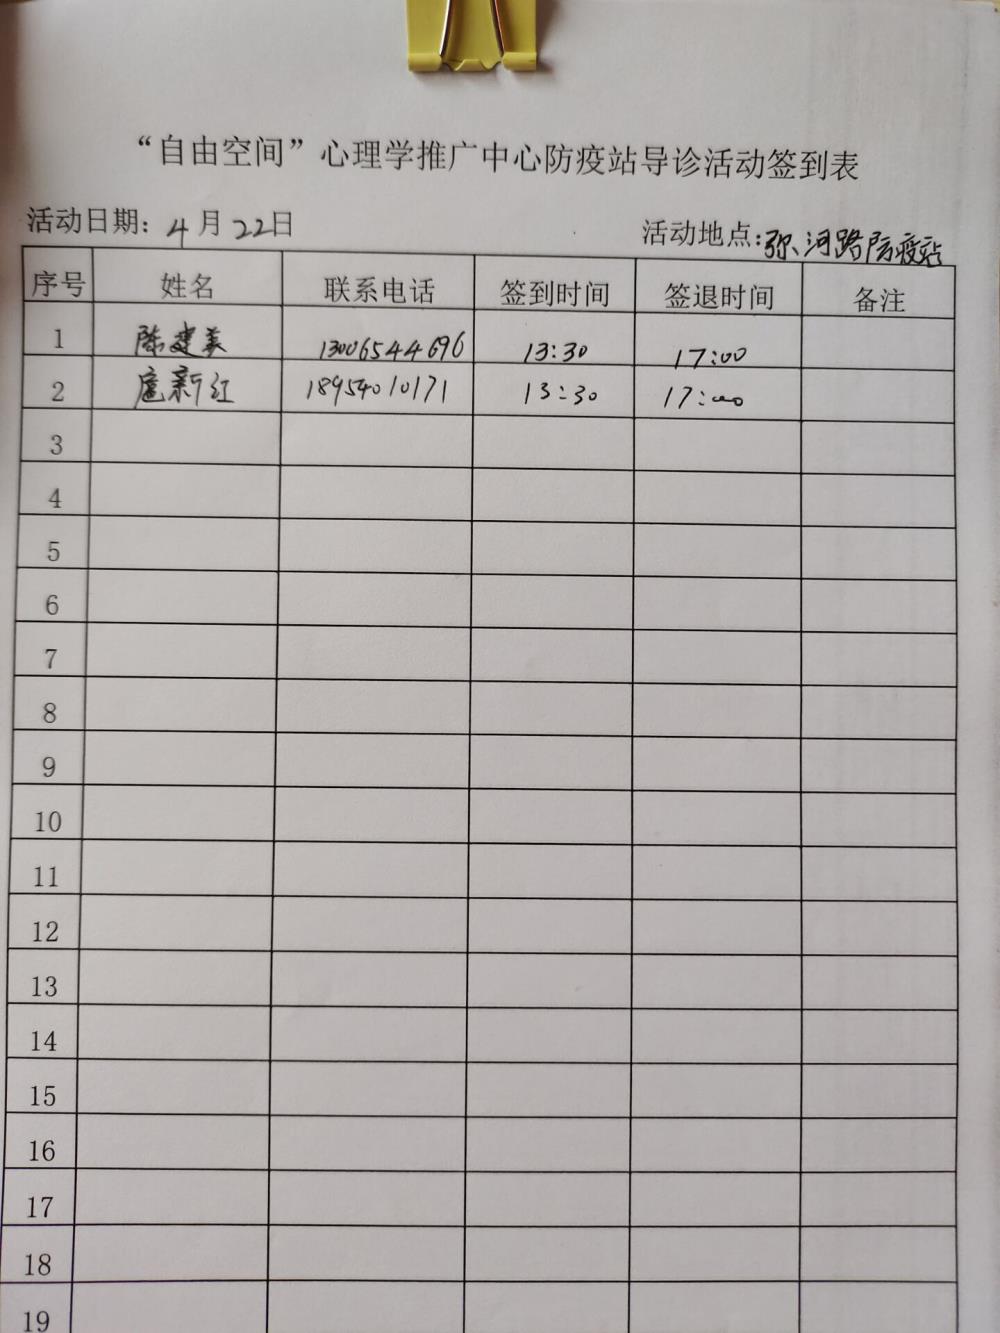 “自由空间”心理学推广中心防疫站导诊活动签到表
活动日期：4月22日 活动地点：弥河路防疫站
序号 姓名 联系电话 签到时间 签退时间 备注
1 陈建美 13006544696 13:30 17:00
2 扈新红 18954010171 13:30 17:00
3
4
5
6
7
8
9
10
11
12
13
14
15
16
17
18
19